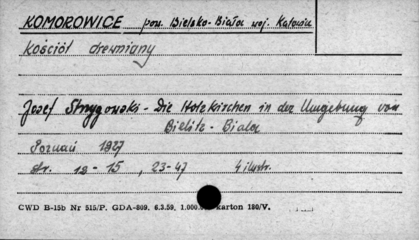 KOMOROWICE pow. Bielsko-Biała woj. Katowice
Kościół drewniany
Josef Strzygowski - Die Holzkirchen in der Umgebung von
Bielitz - Biala
Poznań 1927
str. 12 - 15, 23-47 4 ilustr.
CWD B-15b Nr 515/P. GDA-809. 6.3.59. 1.000. karton 180/V.